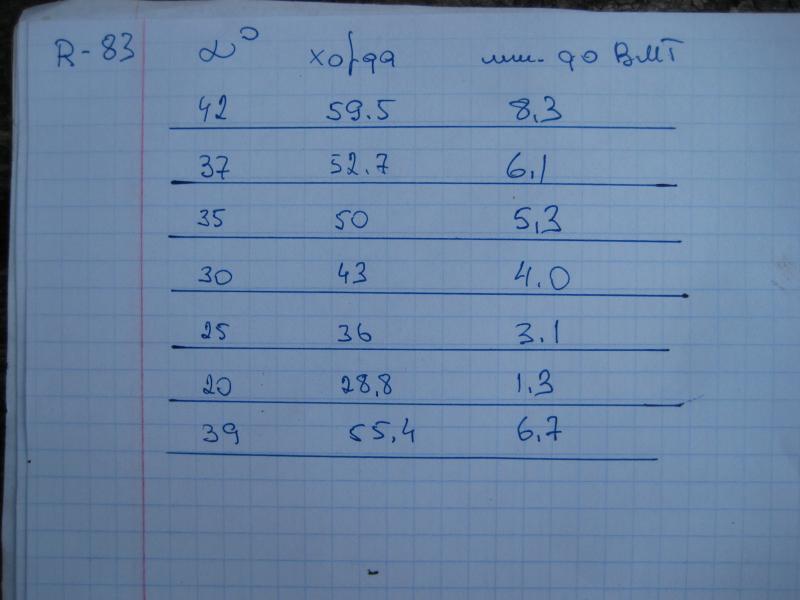 R-83 α° хорда мм. до ВМТ
42 59.5 8,3
37 52.7 6,1
35 50 5,3
30 43 4.0
25 36 3.1
20 28,8 1.3
39 55,4 6,7